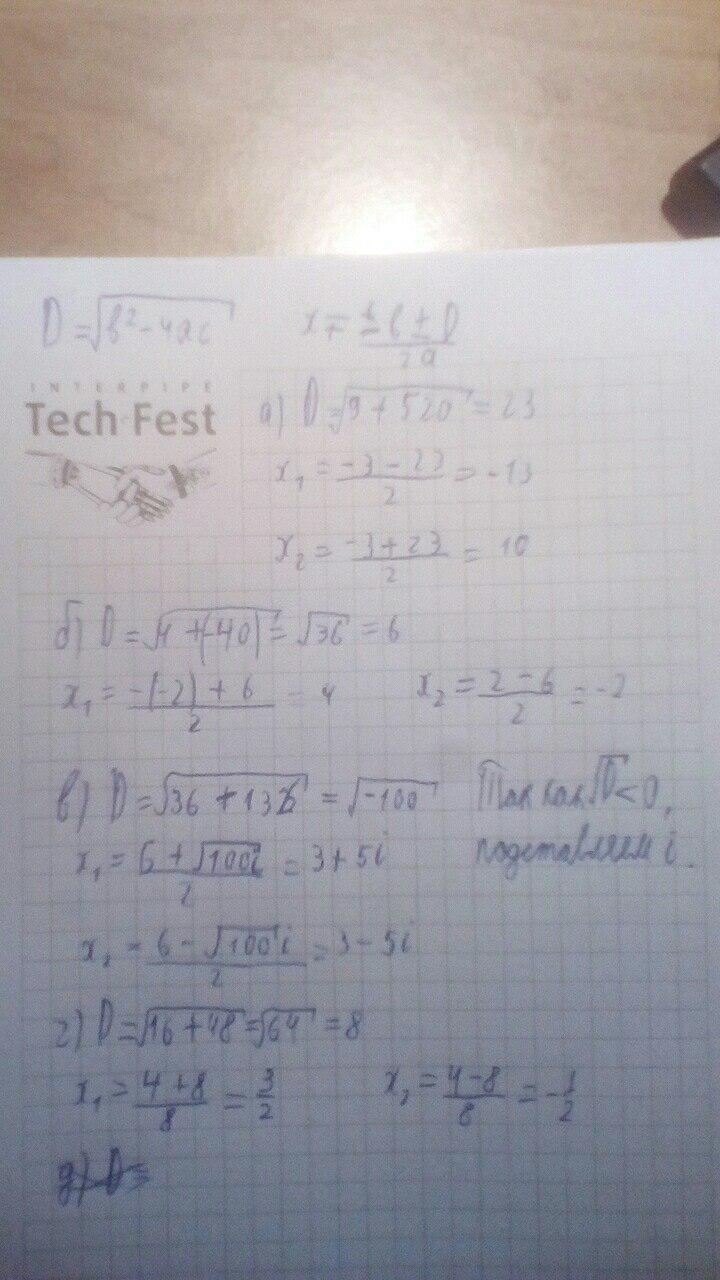 D = √(b² - 4ac) x = (-b ± D)/2a
INTERPIPE
Tech Fest
а) D = √(9 + 520) = 23
x₁ = (-3 - 23)/2 = -13
x₂ = (-3 + 23)/2 = 10
б) D = √(4 + (-40)) = √36 = 6
x₁ = (-(-2) + 6)/2 = 4 x₂ = (2 - 6)/2 = -2
в) D = √(36 + 136) = √(-100) Так как √D < 0,
x₁ = (6 + √100i)/2 = 3 + 5i подставляем i.
x₂ = (6 - √100 i)/2 = 3 - 5i
г) D = √(16 + 48) = √64 = 8
x₁ = (4 + 8)/8 = 3/2 x₂ = (4 - 8)/8 = -1/2
д) D =